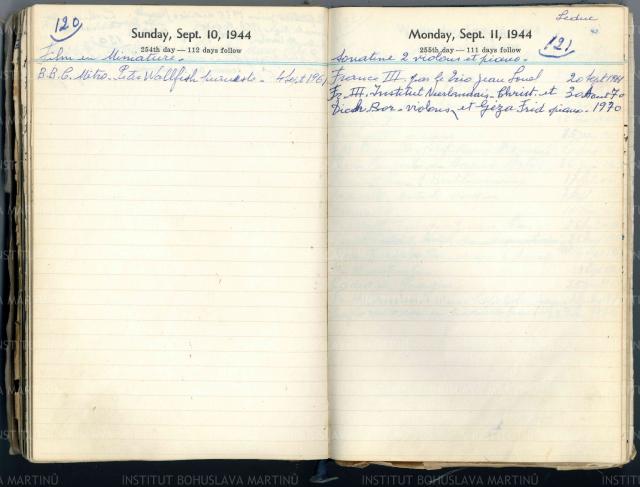 120
Sunday, Sept. 10, 1944
254th day — 112 days follow
Film en Miniature -
B.B.C. Métro. Peter Wallfisch 4 Sept 196
Leduc
121
Monday, Sept. 11, 1944
255th day — 111 days follow
Sonatine 2 violons et piano -
France III - par le Trio Jean 20 Sept
Fr. III. Institut Néerlandais - Christ. et 30 Aout 70
Dick Bor - violons, et Géza Frid piano - 1970
INSTITUT BOHUSLAVA MARTINŮ
INSTITUT BOHUSLAVA MARTINŮ